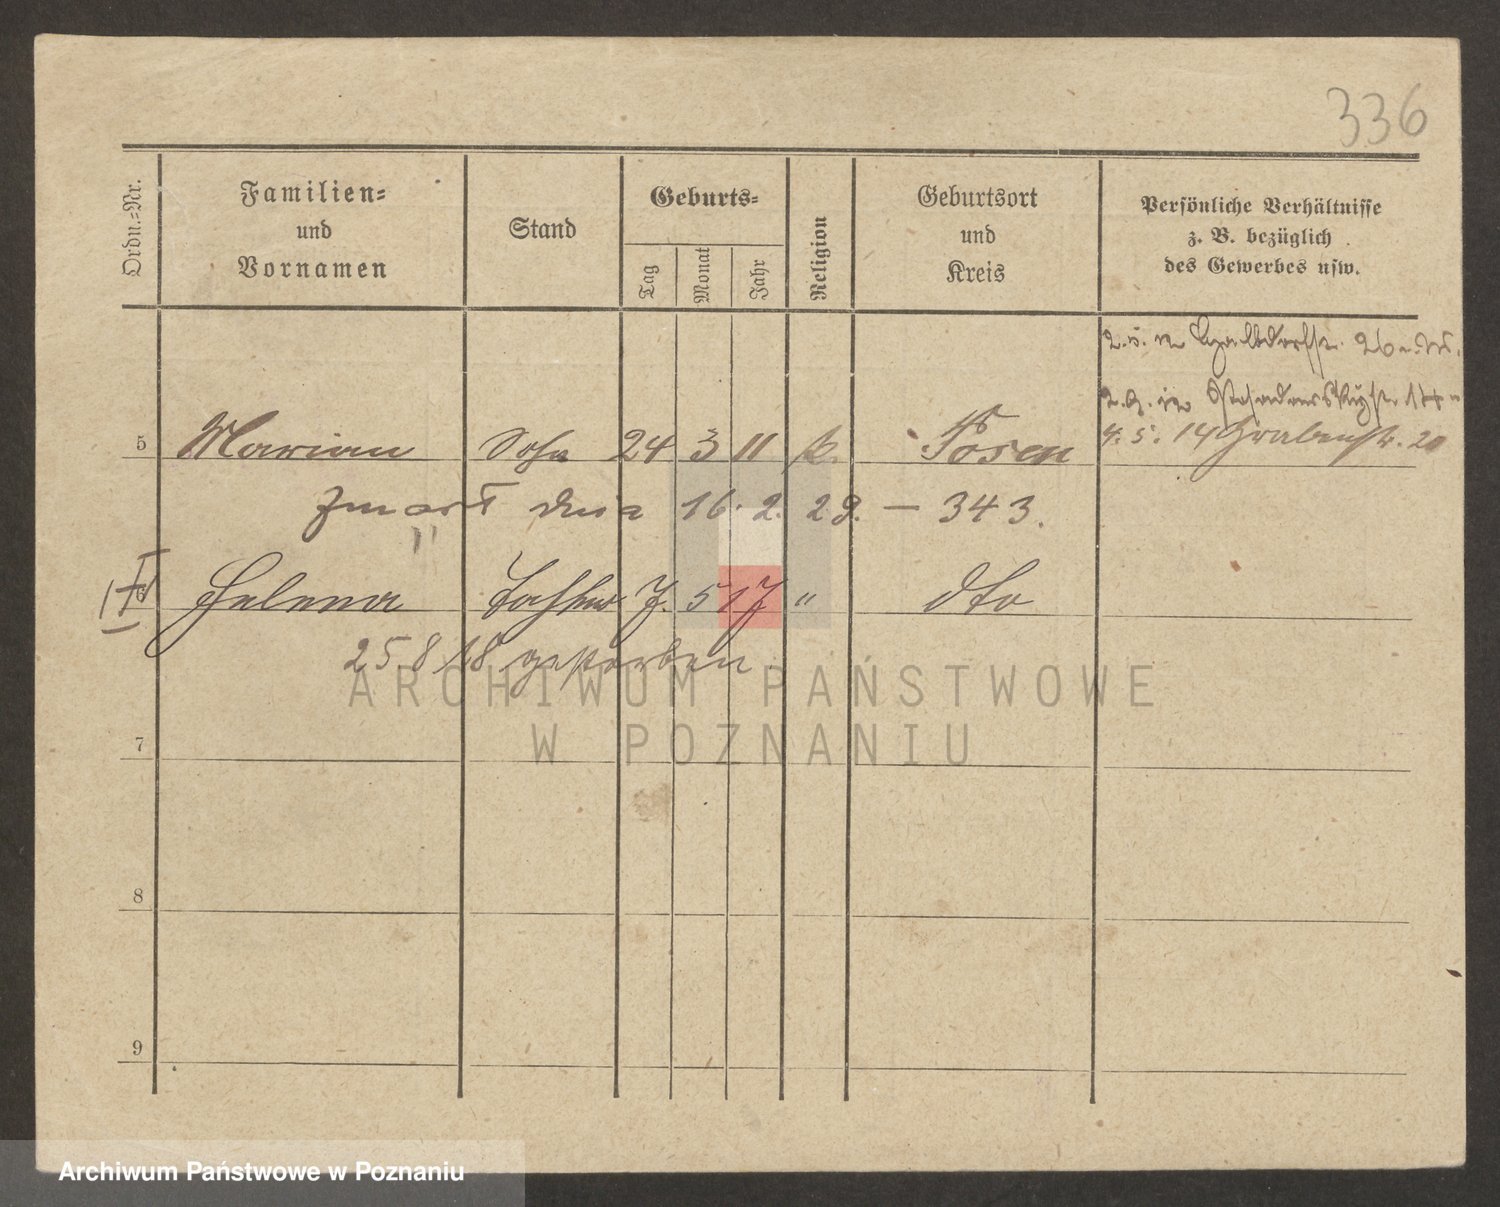 336
Ordn.=Nr.
Familien=
und
Vornamen
Stand
Geburts=
Tag
Monat
Jahr
Religion
Geburtsort
und
Kreis
Persönliche Verhältnisse
z. B. bezüglich
des Gewerbes usw.
5 Marian Sohn 24 3 11 k. Posen
4. 5. 14 Grabenstr. 20
zmarł dnia 16. 2. 29. – 343.
6 Helena Tochter 7. 5 17 " dto
25 8 18 gestorben
7
8
9
ARCHIWUM PAŃSTWOWE
W POZNANIU
Archiwum Państwowe w Poznaniu